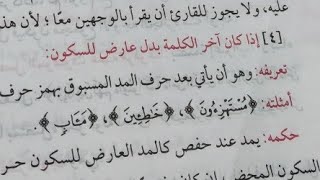 عليه، ولا يجوز للقارئ أن يقرأ بالوجهين معًا؛ لأن هذا
[٤] إذا كان آخر الكلمة بدل عارض للسكون:
تعريفه: وهو أن يأتي بعد حرف المد المسبوق بهمز حرف
أمثلته: ﴿مُسْتَهْزِءُونَ﴾، ﴿خَٰطِـِٔينَ﴾، ﴿مَـَٔابٍ﴾.
حكمه: يمد عند حفص كالمد العارض للسكون حر
السكون المحض